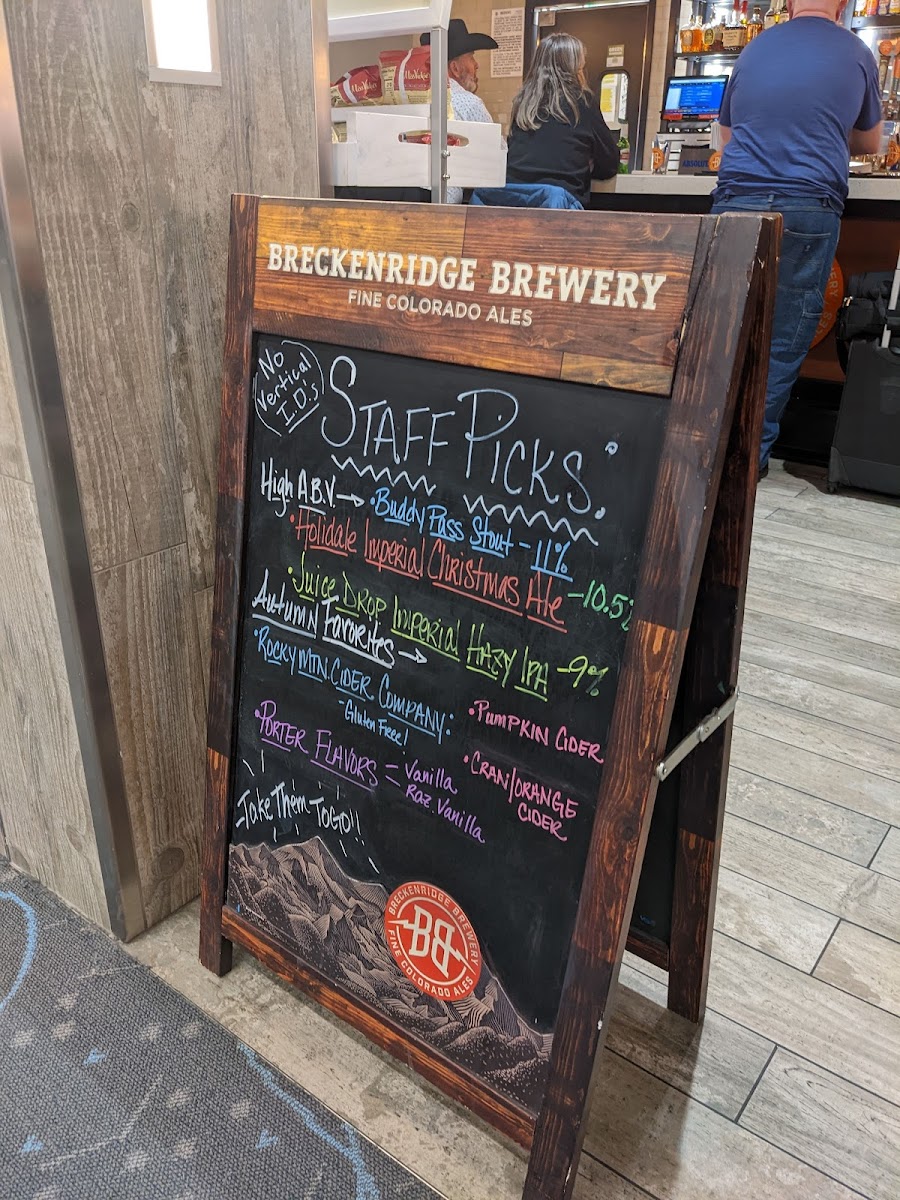 BRECKENRIDGE BREWERY
FINE COLORADO ALES
No
Vertical
I.D.'s
STAFF PICKS:
High A.B.V → • Buddy Pass Stout - 11%
• Holidale Imperial Christmas Ale - 10.5%
• Juice Drop Imperial Hazy IPA - 9%
Autumn Favorites →
• Rocky MTN. Cider Company:
- Gluten Free!
• Pumpkin Cider
• Cran/Orange
Cider
• Porter Flavors = Vanilla
Raz. Vanilla
-Take Them TOGO!!
BRECKENRIDGE BREWERY
BB
FINE COLORADO ALES
ABSOLUT